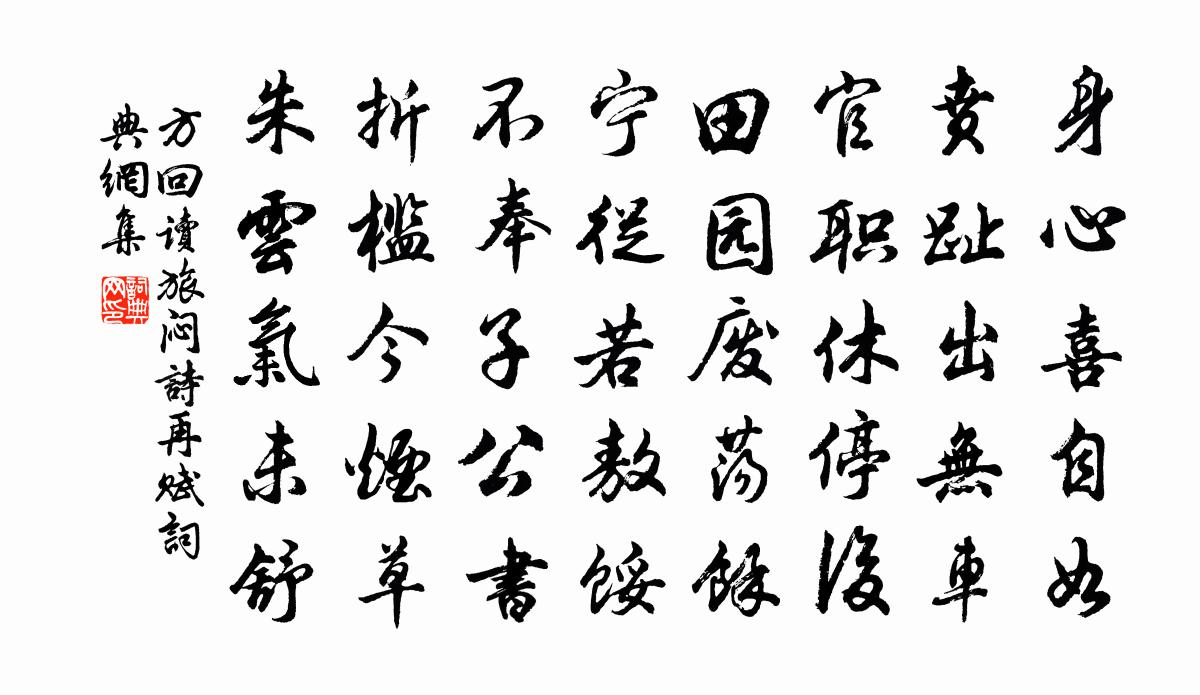 身心喜自如
賁趾出無車
官职休停後
田园废荡餘
宁從若敖馁
不奉子公書
折檻今煙草
朱雲氣未舒
方回读旅闷詩再赋詞
典網集
詞典网印